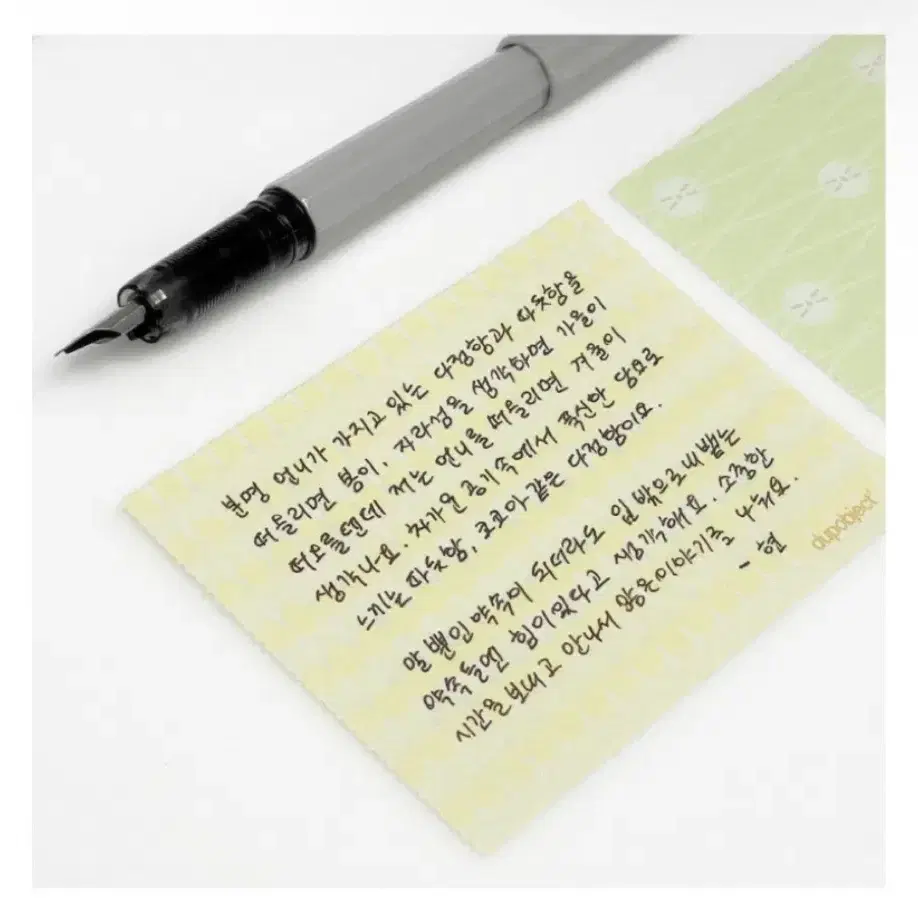 분명 언니가 가지고 있는 다정함과 따뜻함을
떠올리면 봄이, 자라섬을 생각하면 가을이
떠오를텐데 저는 언니를 떠올리면 겨울이
생각나요. 차가운 공기 속에서 푹신한 담요로
느끼는 따뜻함, 코코아같은 다정함이요.
말 뿐인 약속이 되더라도 입 밖으로 내뱉는
약속들엔 힘이 있다고 생각해요. 소중한
시간을 보내고 만나서 많은 이야기를 나눠요.
- 현
dupobject